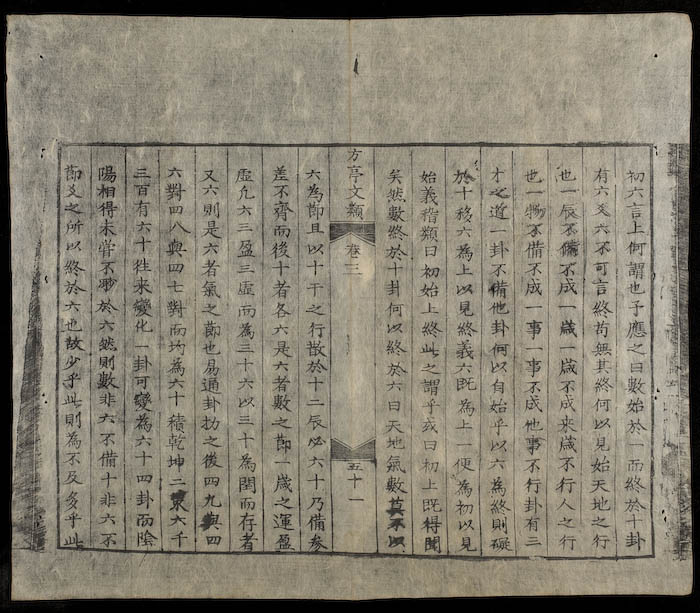 初六言上何謂也子應之曰數始於一而終於十卦
有六爻六不可言終苟無其終何以見始天地之行
也一辰不備不成一歲一歲不成來歲不行人之行
也一物不備不成一事一事不成他事不行卦有三
才之道一卦不備他卦何以自始乎以六為終則礙
於十移六為上以見終義六既為上一便為初以見
始義稽類曰初始上終此之謂乎或曰初上既得聞
矣然數終於十卦何以終於六曰天地氣數莫不以
方亭文類 卷三 五十一
六為節且以十干之行散於十二辰必六十乃備參
差不齊而後十者各六是六者數之節一歲之運盈
虛允六三盈三虛而為三十六以三十為閏而存者
又六則是六者氣之節也易通卦扐之後四九與四
六對四八與四七對而均為六十積乾坤二策六千
三百有六十往來變化一卦可變為六十四卦而陰
陽相得未嘗不聯於六然則數非六不備十非六不
節爻之所以終於六也故少乎此則為不及多乎此